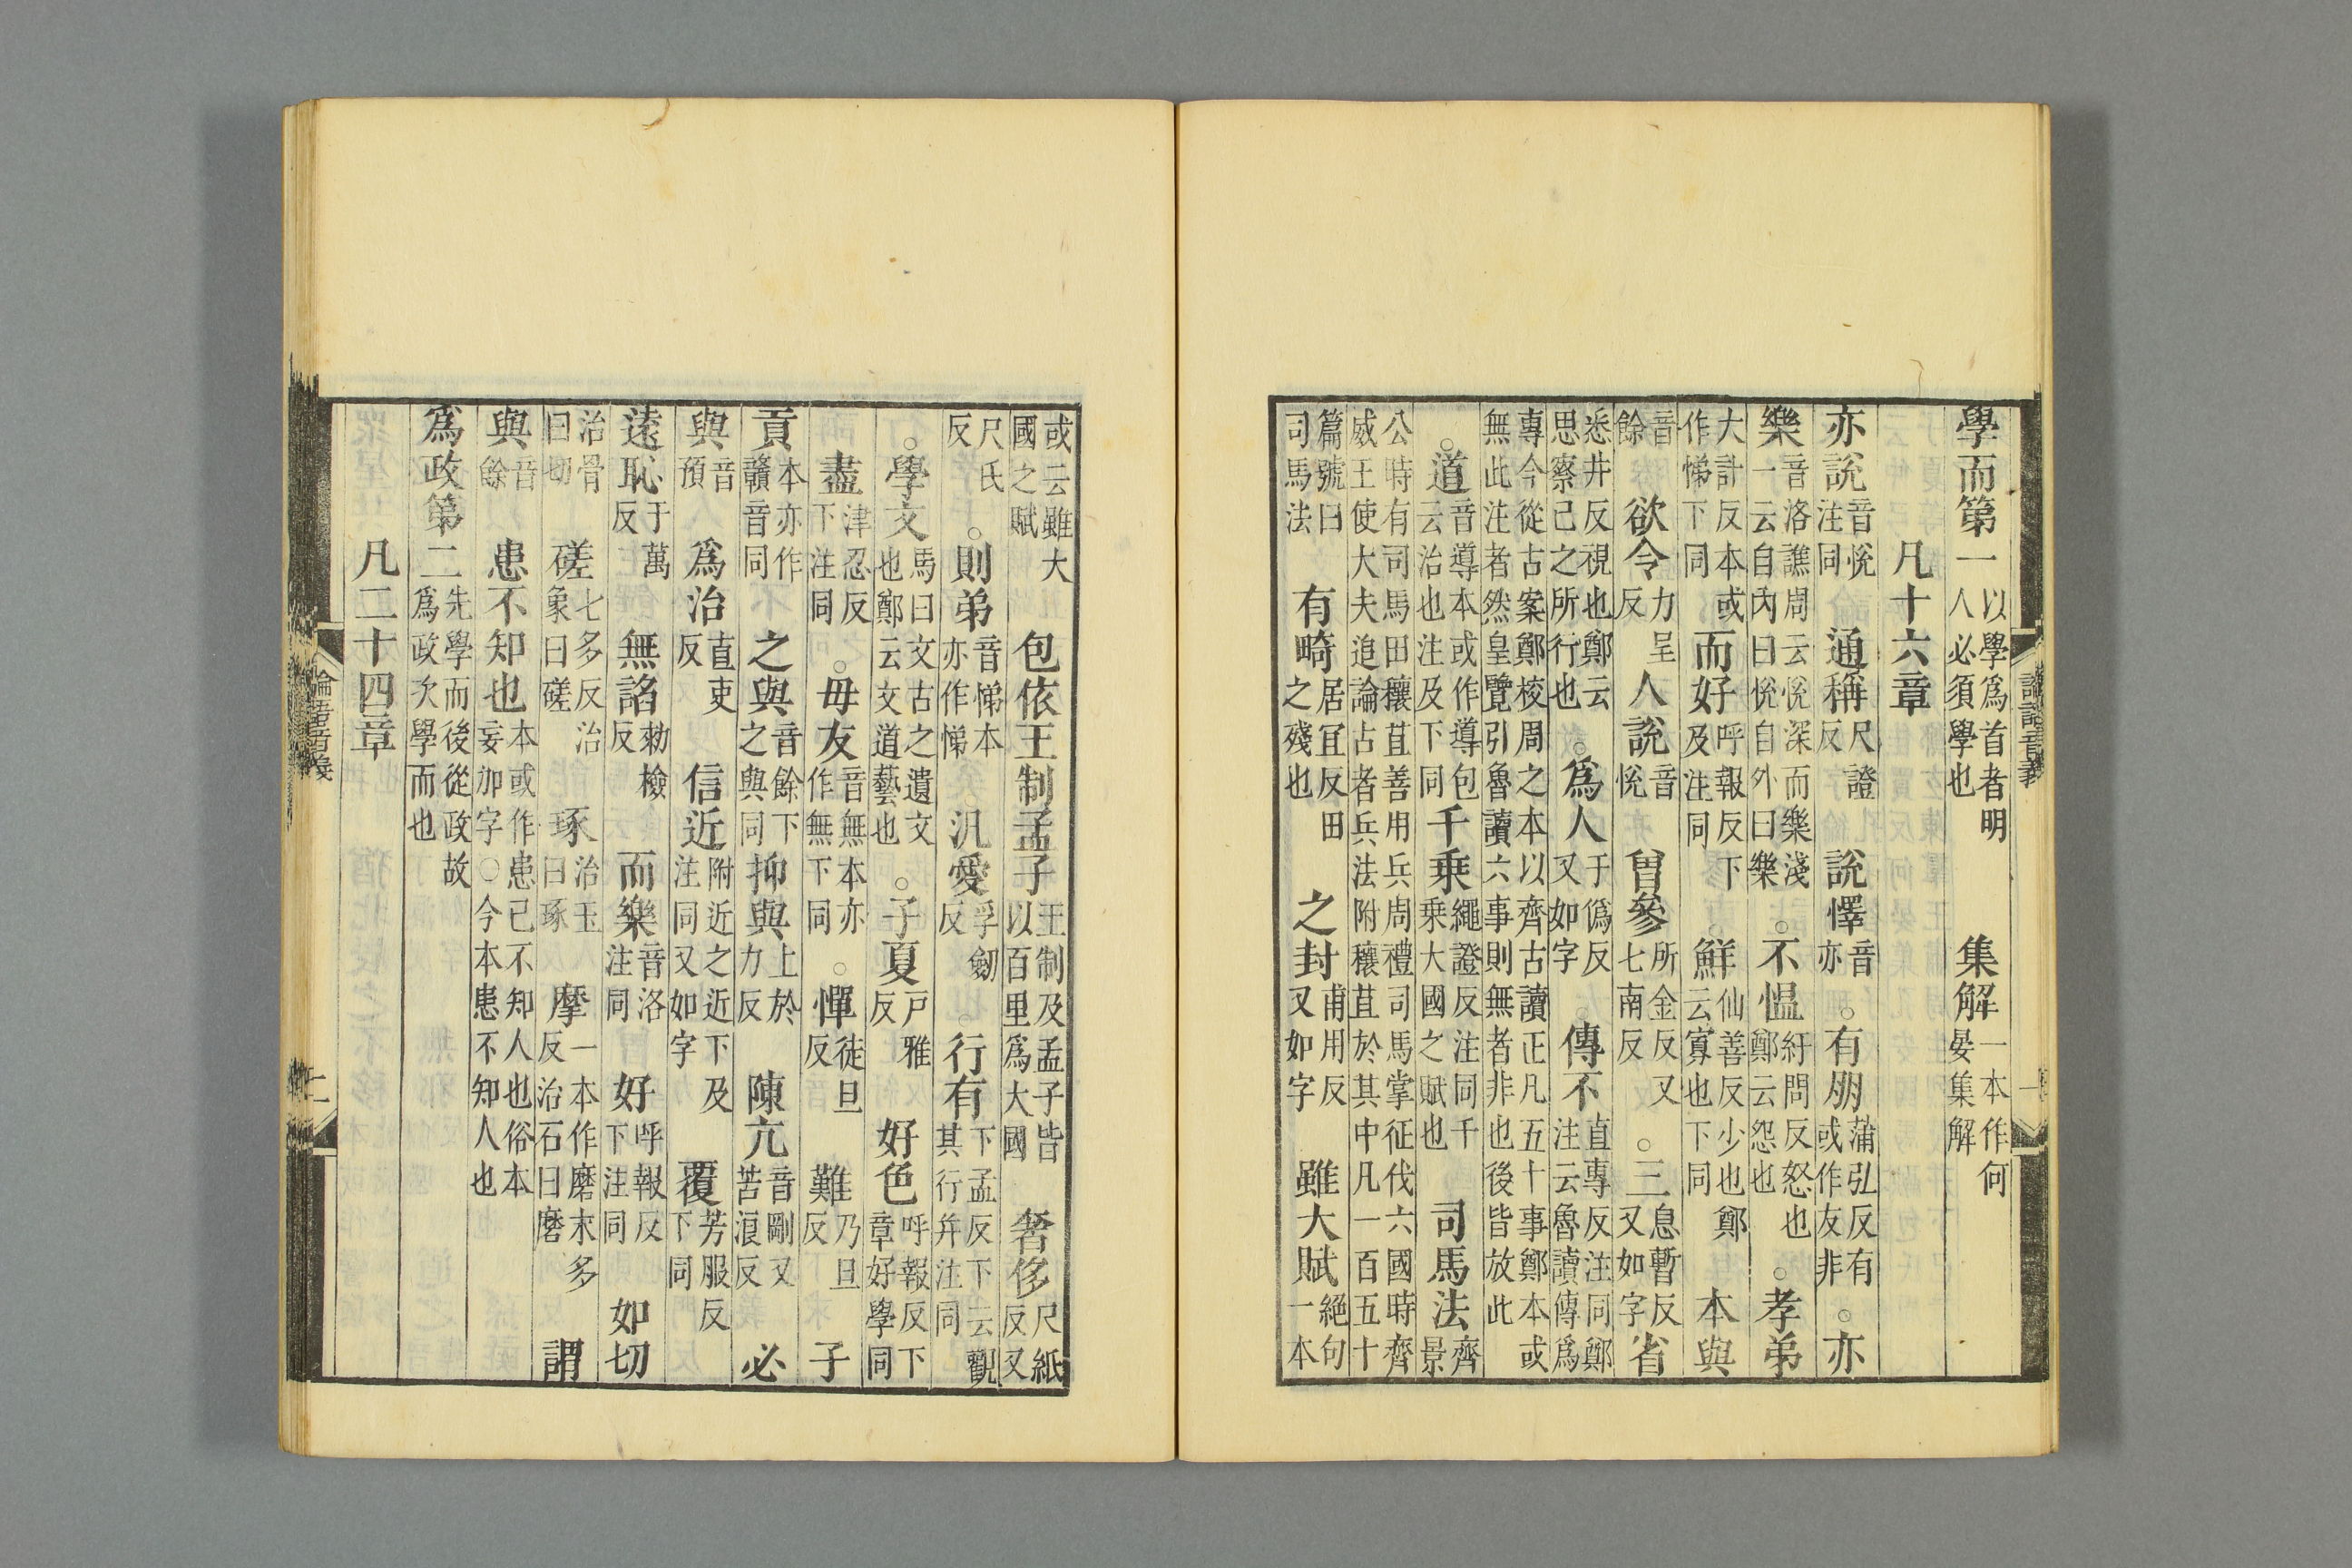 學而第一以學爲首者明人必須學也 集解一本作何晏集解
凡十六章
亦說音悅注同 通稱尺證反 說懌音亦 ○有朋蒲弘反有或作友非 ○亦
樂音洛譙周云悅深而樂淺一云自內曰悅自外曰樂 ○不慍紆問反怒也鄭云怨也 ○孝弟
大計反本或作悌下同 而好呼報反下及注同 鮮仙善反少也鄭云寡也下同 本與
音餘 欲令力呈反 人說音悅 曾參所金反又七南反 ○三息暫反又如字 省
悉井反視也鄭云思察己之所行也 ○爲人于僞反又如字 傳不直專反注同鄭注云魯讀傳爲
專今從古案鄭校周之本以齊古讀正凡五十事鄭本或無此注者然皇覽引魯讀六事則無者非也後皆放此
○道音導本或作導包云治也注及下同 千乗繩證反注同千乗大國之賦也 司馬法齊景
公時有司馬田穰苴善用兵周禮司馬掌征伐六國時齊威王使大夫追論古者兵法附穰苴於其中凡一百五十
篇號曰司馬法 有畸居冝反田之殘也 之封甫用反又如字 雖大賦絕句一本
論語音義 一
或云雖大國之賦 包依王制孟子王制及孟子皆以百里爲大國 奢侈尺紙反又
尺氏反 ○則弟音悌本亦作悌 汎愛孚劒反 行有下孟反下云觀其行并注同
○學文馬曰文古之遺文也鄭云文道藝也 ○子夏戸雅反 好色呼報反下章好學同
盡津忍反下注同 ○毋友音無本亦作無下同 ○憚徒旦反 難乃旦反 子
貢本亦作贛音同 之與音餘下之與同 抑與上於力反 陳亢音剛又苦浪反 必
與音預 爲治直吏反 信近附近之近下及注同又如字 覆芳服反下同
遠恥于萬反 無諂勑檢反 而樂音洛注同 好呼報反下注同 如切
治骨曰切 磋七多反治象曰磋 琢治玉曰琢 摩一本作磨末多反治石曰磨 謂
與音餘 患不知也本或作患己不知人也俗本妄加字○今本患不知人也
爲政第二先學而後從政故爲政次學而也
凡二十四章
論語音義 二